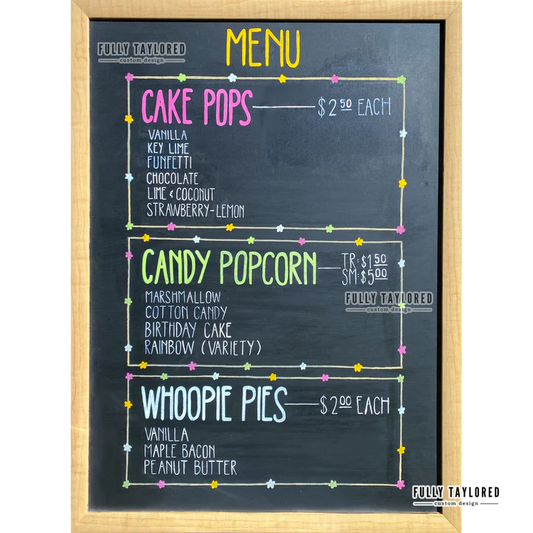 FULLY TAYLORED
custom design
MENU
CAKE POPS $2.50 EACH
VANILLA
KEY LIME
FUNFETTI
CHOCOLATE
LIME & COCONUT
STRAWBERRY-LEMON
CANDY POPCORN TR: $1.50
SM: $5.00
MARSHMALLOW
COTTON CANDY
BIRTHDAY CAKE
RAINBOW (VARIETY)
FULLY TAYLORED
custom design
WHOOPIE PIES $2.00 EACH
VANILLA
MAPLE BACON
PEANUT BUTTER
FULLY TAYLORED
custom design